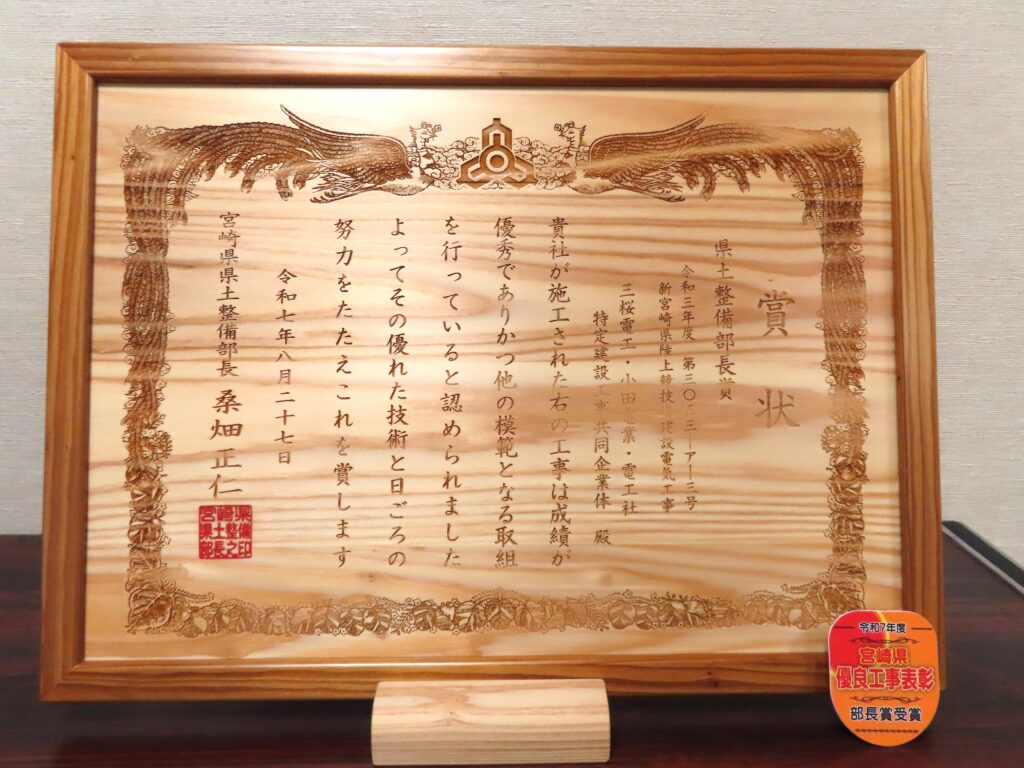 賞状
県土整備部長賞
令和三年度 第三〇
三号
新宮崎県陸上競技
建設電気工事
三桜電工・小田
業・電工社
特定建設工事共同企業体 殿
貴社が施工された右の工事は成績が
優秀でありかつ他の模範となる取組
を行っていると認められました
よってその優れた技術と日ごろの
努力をたたえこれを賞します
令和七年八月二十七日
宮崎県県土整備部長 桑畑正仁
令和7年度
宮崎県
優良工事表彰
部長賞受賞